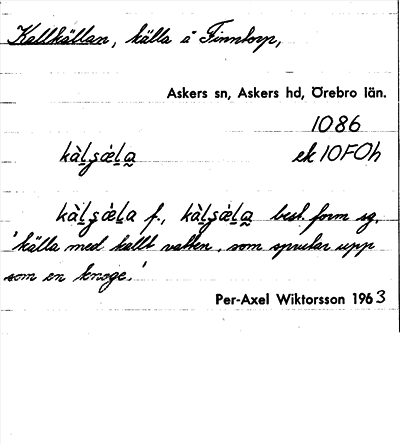 Kallkällan, källa å Finntorp,
Askers sn, Askers hd, Örebro län.
1086
kàl̠ʂǽl̠a̰ ek 10F0h
kàl̠ʂǽl̠a f., kàl̠ʂǽl̠a̰ best. form sg.
'källa med kallt vatten, som sprutar upp
som en knoge.'
Per-Axel Wiktorsson 1963